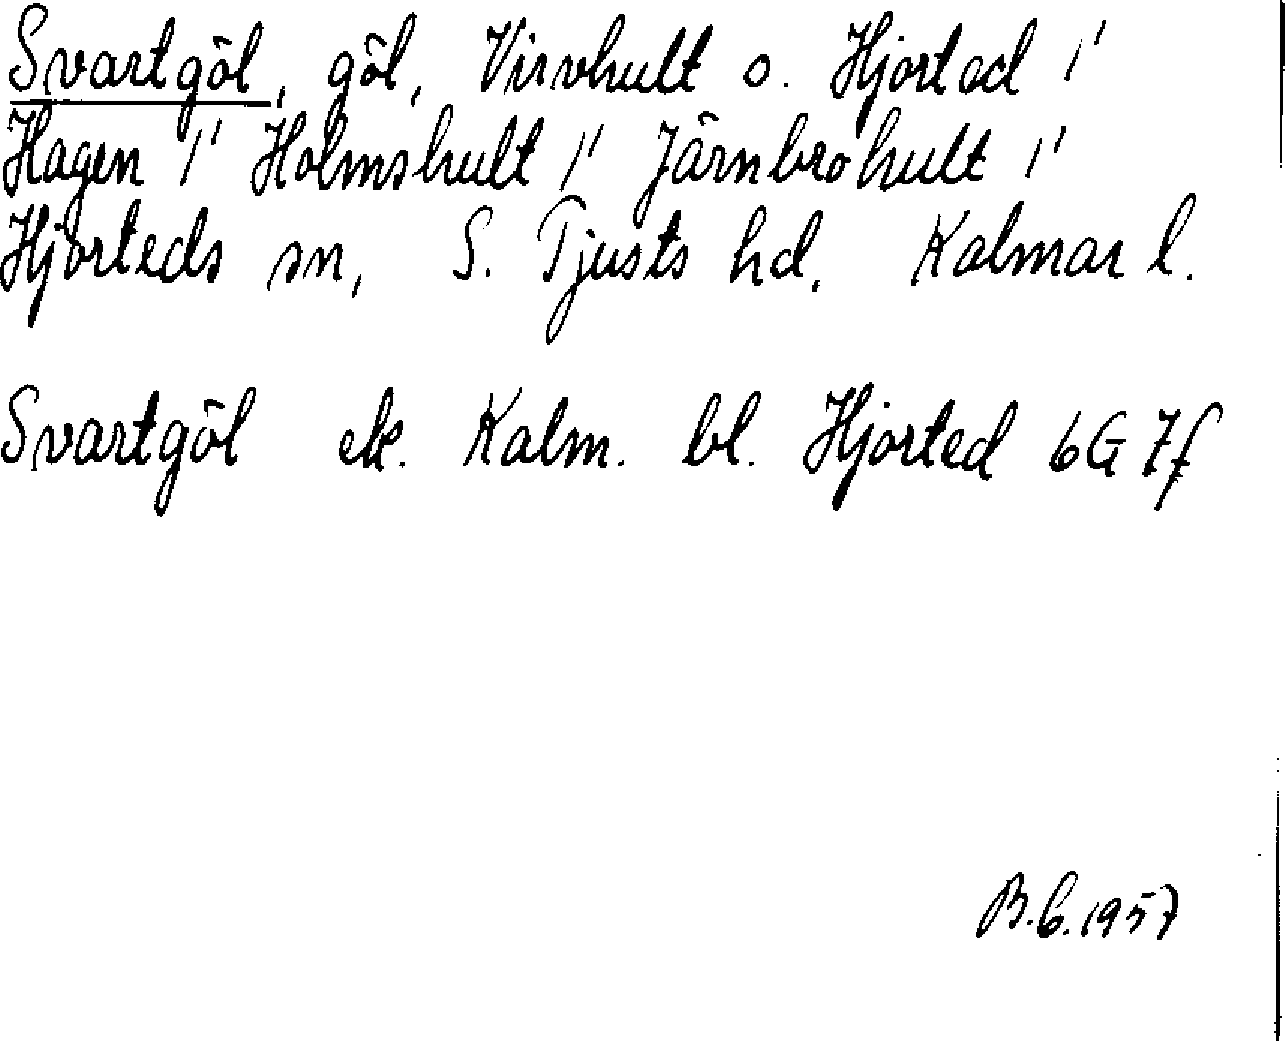 Svartgöl, göl, Virvhult o. Hjorted 1'
Hagen 1' Holmshult 1' Järnbrohult 1'
Hjorteds sn, S. Tjusts hd. Kalmar l.
Svartgöl ek. Kalm. bl. Hjorted 6G 7f
B.C. 1957